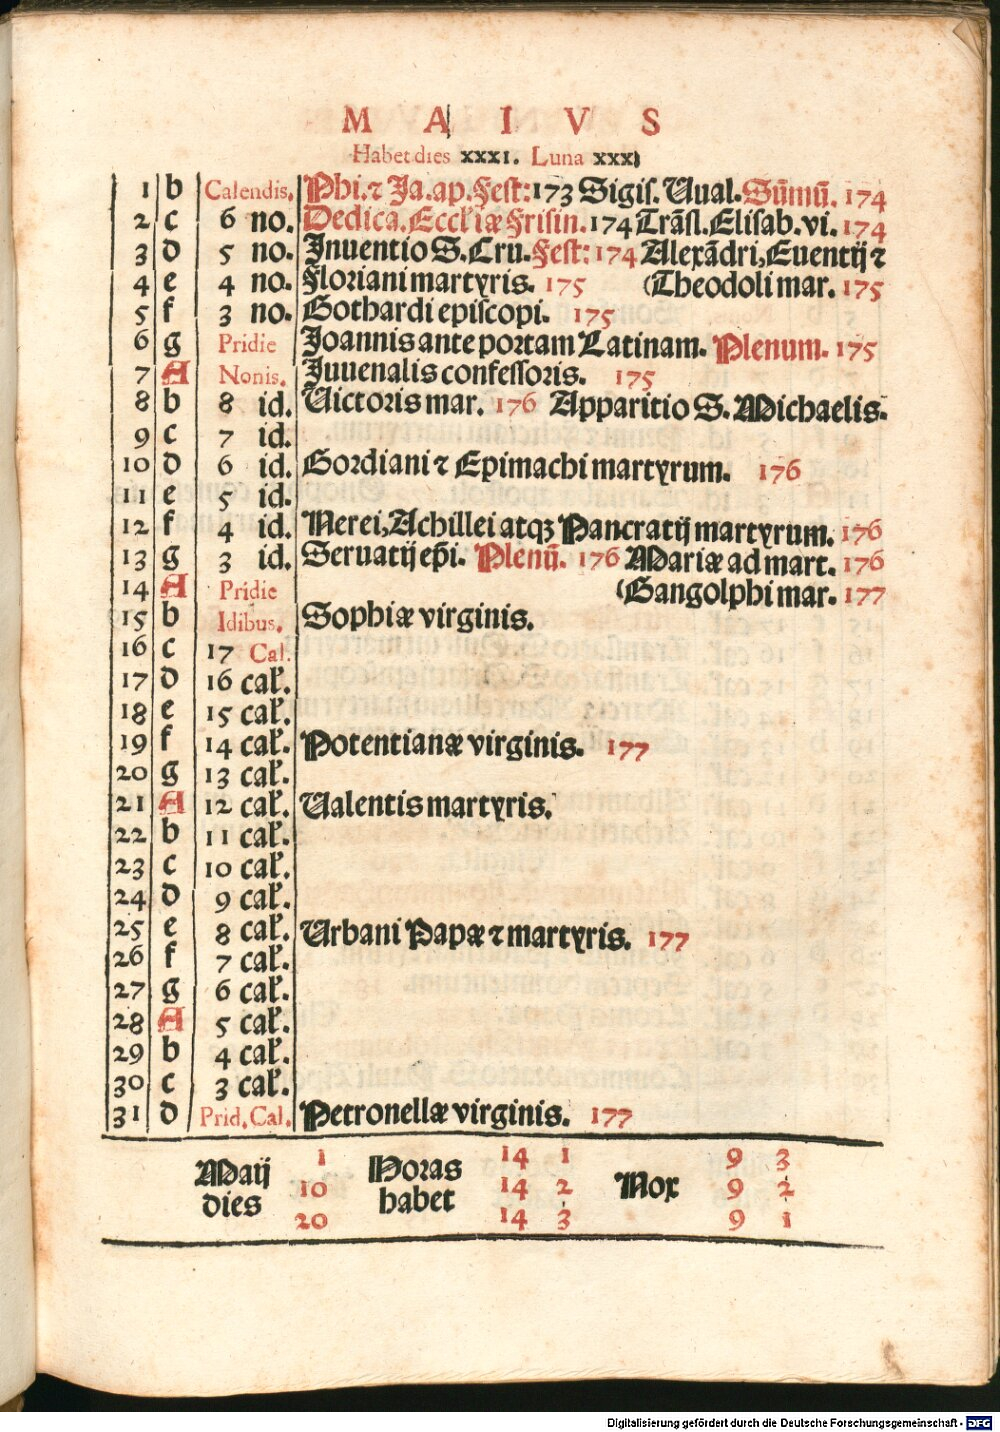 M A I V S
Habet dies xxxi. Luna xxx
1 b Calendis. Phi. ⁊ Ja. ap. Fest: 173 Sigis. Vual. Sūmū. 174
2 c 6 no. Dedica. Eccłiæ Frisin. 174 Trāsl. Elisab. vi. 174
3 d 5 no. Inuentio S. Cru. Fest: 174 Alexādri, Euentij ⁊
4 e 4 no. Floriani martyris. 175 (Theodoli mar. 175
5 f 3 no. Gothardi episcopi. 175
6 g Pridie Joannis ante portam Latinam. Plenum. 175
7 A Nonis. Juuenalis confessoris. 175
8 b 8 id. Victoris mar. 176 Apparitio S. Michaelis.
9 c 7 id.
10 d 6 id. Gordiani ⁊ Epimachi martyrum. 176
11 e 5 id.
12 f 4 id. Nerei, Achillei atqꝫ Pancratij martyrum. 176
13 g 3 id. Seruatij ep̄i. Plenū. 176 Mariæ ad mart. 176
14 A Pridie (Gangolphi mar. 177
15 b Idibus. Sophiæ virginis.
16 c 17 Cal.
17 d 16 cał.
18 e 15 cał.
19 f 14 cał. Potentianæ virginis. 177
20 g 13 cał.
21 A 12 cał. Valentis martyris.
22 b 11 cał.
23 c 10 cał.
24 d 9 cał.
25 e 8 cał. Urbani Papæ ⁊ martyris. 177
26 f 7 cał.
27 g 6 cał.
28 A 5 cał.
29 b 4 cał.
30 c 3 cał.
31 d Prid. Cal. Petronellæ virginis. 177
Maij dies 1 Horas habet 14 1 Nox 9 3
10 14 2 9 2
20 14 3 9 1
Digitalisierung gefördert durch die Deutsche Forschungsgemeinschaft - DFG